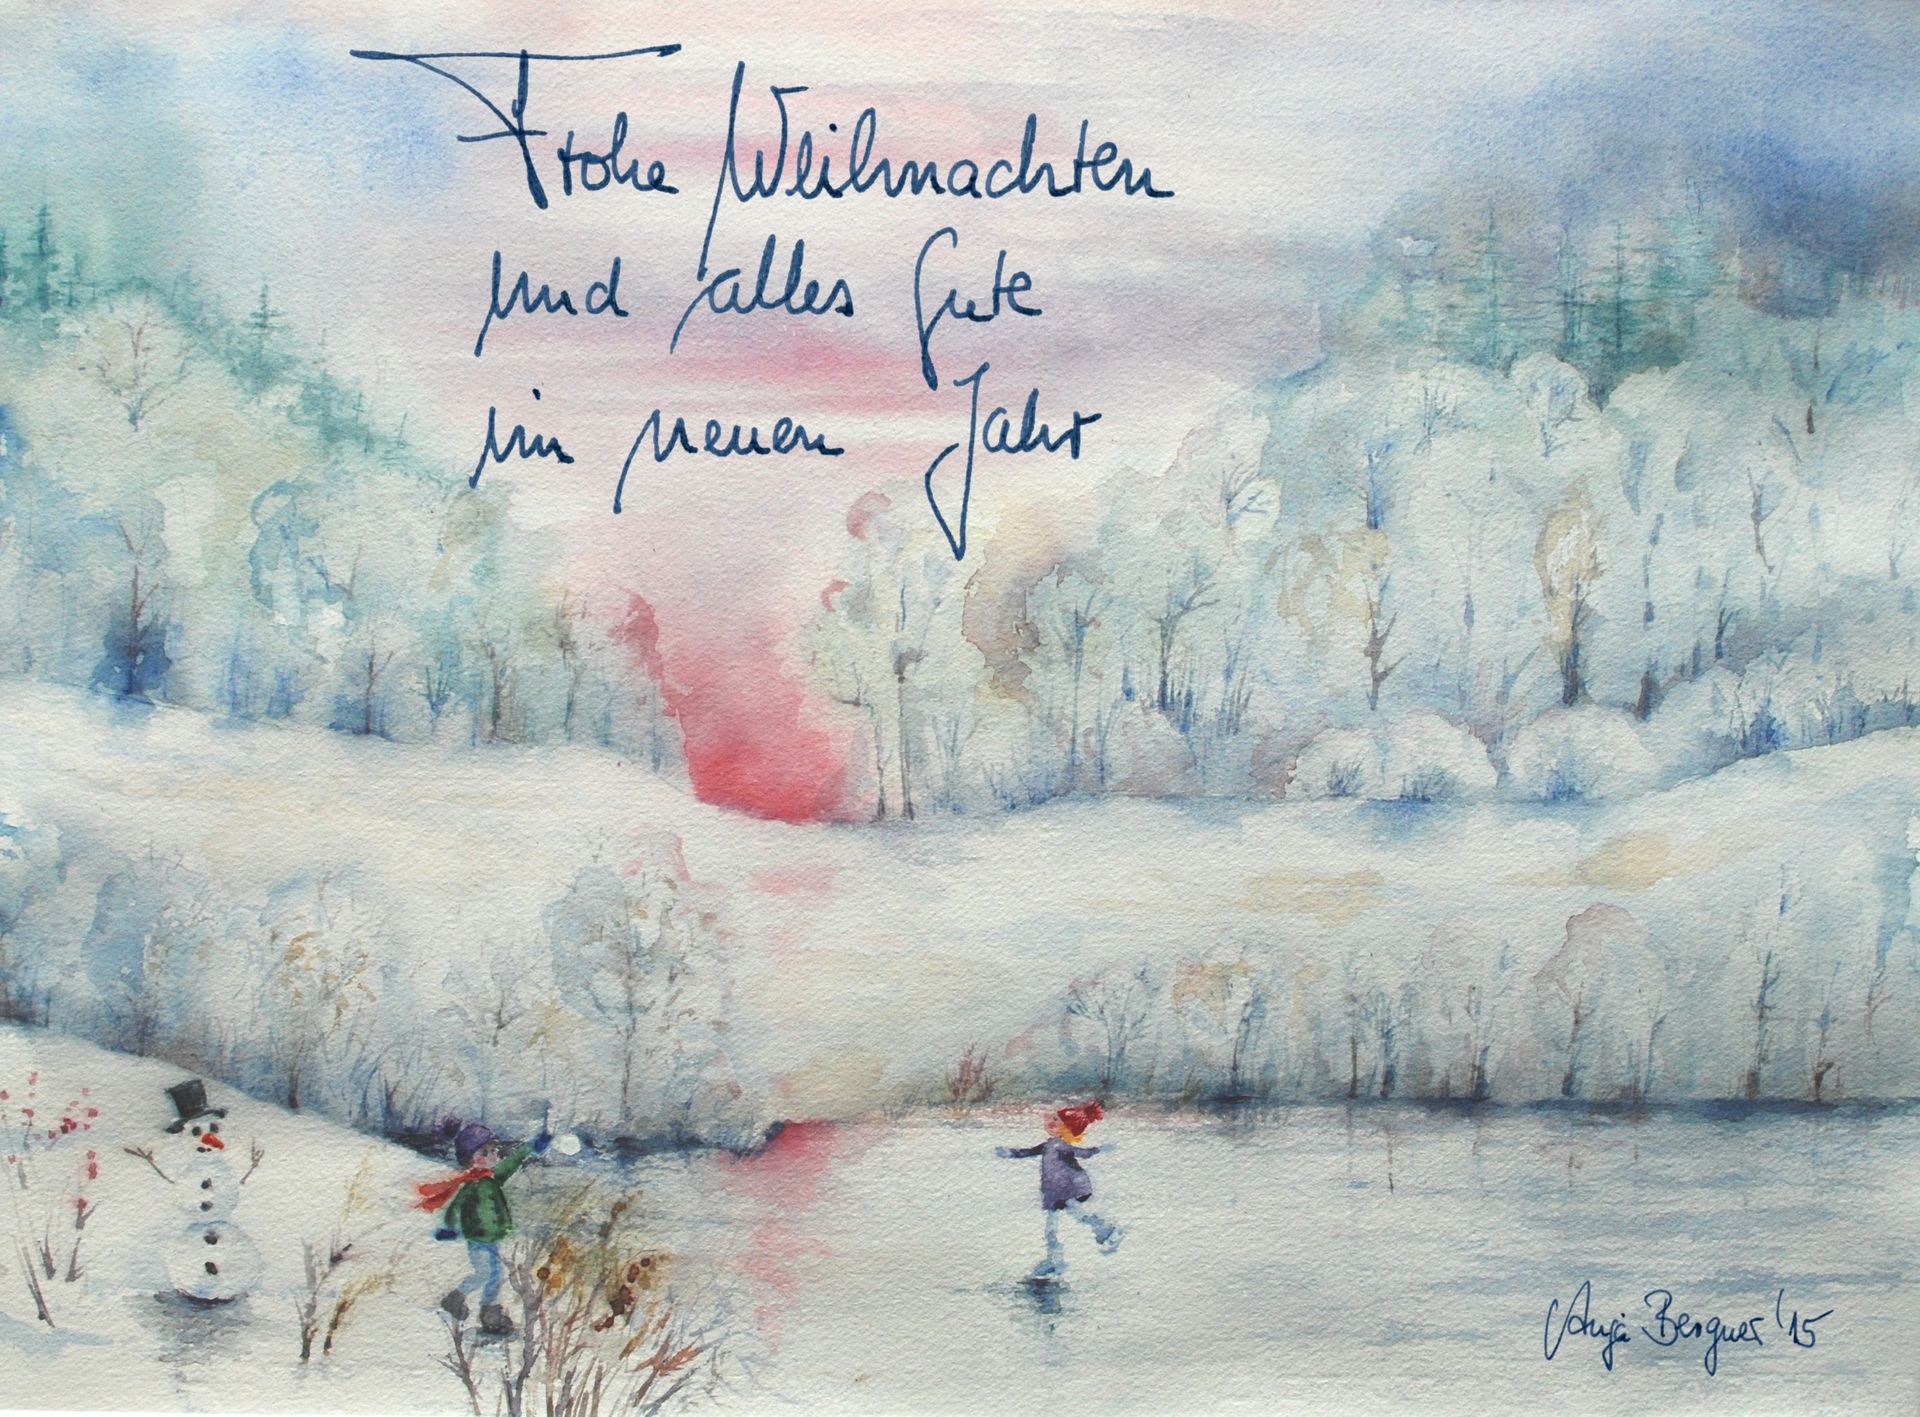 Frohe Weihnachten
und alles Gute
im neuen Jahr
Anja Bergner '15